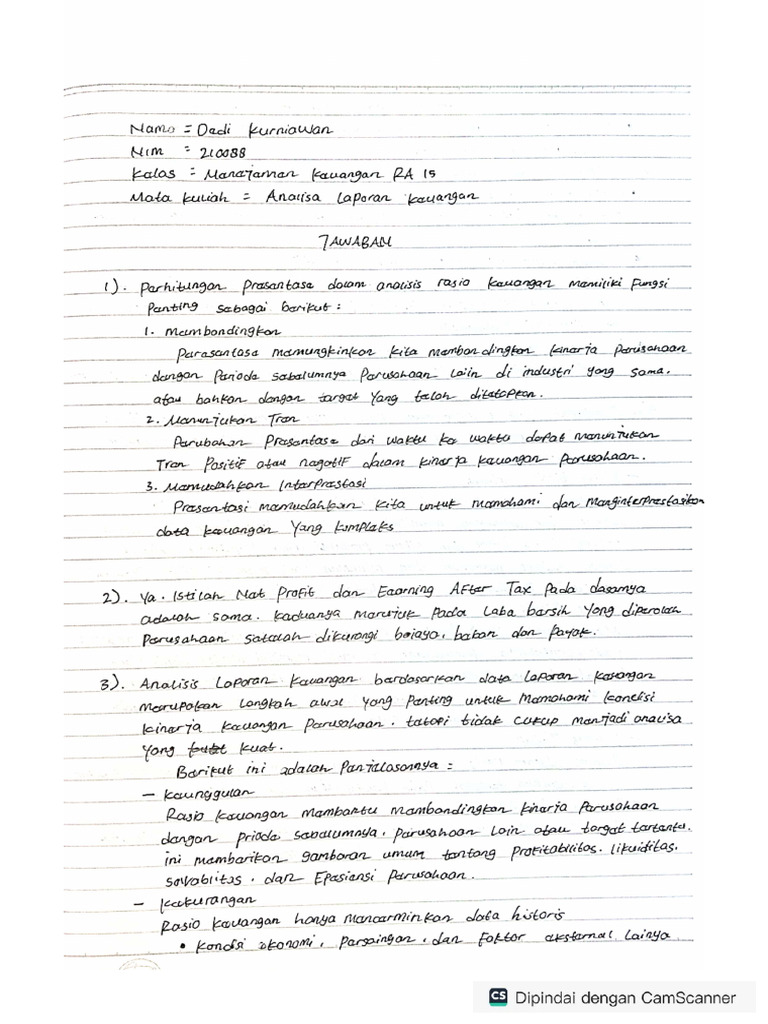 Nama = Dedi Kurniawan
Nim = 210088
Kelas = Manajemen Keuangan RA 15
Mata kuliah = Analisa Laporan keuangan
JAWABAN
1). Perhitungan Presentase dalam analisis rasio keuangan memiliki fungsi
Penting sebagai berikut :
1. Membandingkan
Perasentase memungkinkan kita membandingkan kinerja perusahaan
dengan Periode sebelumnya Perusahaan lain di industri yang sama.
atau bahkan dengan target yang telah ditetapkan.
2. Menunjukan Tren
Perubahan Presentase dari waktu ke waktu dapat menunjukan
Tren Positif atau negatif dalam kinerja keuangan perusahaan.
3. Memudahkan Interprestasi
Presentasi memudahkan kita untuk memahami dan menginterprestasikan
data keuangan yang kompleks
2). Ya. Istilah Net Profit dan Eaarning After Tax Pada dasarnya
adalah sama. keduanya merujuk pada laba bersih yang diperoleh
Perusahaan setelah dikurangi beiaya, beban dan pajak.
3). Analisis Laporan keuangan berdasarkan data laporan keuangan
merupakan langkah awal yang penting untuk memahami kondisi
kinerja keuangan perusahaan. tetapi tidak cukup menjadi analisa
yang kuat.
Berikut ini adalah Penjelasannya :
- keunggulan
Rasio keuangan membantu membandingkan kinerja Perusahaan
dengan priode sebelumnya, perusahaan lain atau target tertentu.
ini memberikan gambaran umum tentang profitabilitas. likuiditas.
solvablitas, dan Epesiensi Perusahaan.
- kekurangan
Rasio keuangan hanya mencerminkan data historis
• kondsi ekonomi, persaingan, dan faktor eksternal lainya
CS Dipindai dengan CamScanner